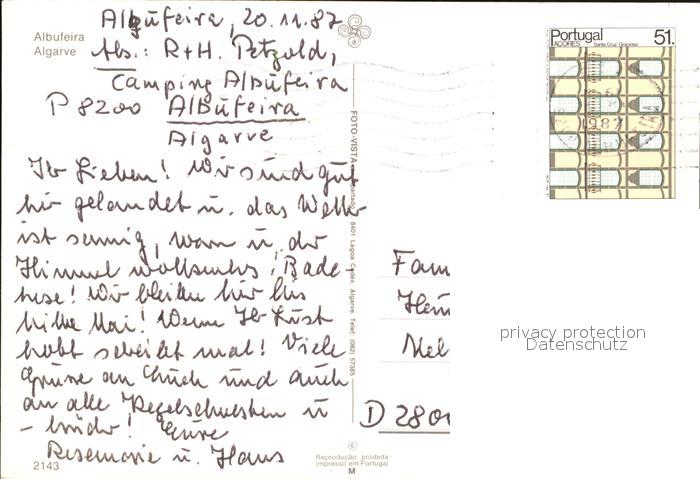 Albufeira
Algarve
Albufeira, 20.11.87
Abs.: R+H. Petzold,
Camping Albufeira
P 8200 Albufeira
Algarve
Ihr Lieben! Wir sind gut
hier gelandet u. das Wetter
ist sonnig, warm u. der
Himmel wolkenlos! Bade-
hose! Wir bleiben hier bis
Mitte Mai! Wenn Ihr Lust
habt schreibt mal! Viele
Grüsse an Euch und auch
an alle Kegelschwestern u
- brüder! Eure
Rosemarie u. Hans
2143
FOTO-VISTA
8401 Lagoa Codex, Algarve, Telef. (082) 57385
©
Reprodução proibida
Impresso em Portugal
M
Portugal 51.
AÇORES Santa Cruz-Graciosa
1987
Fam
D 2800
privacy protection
Datenschutz